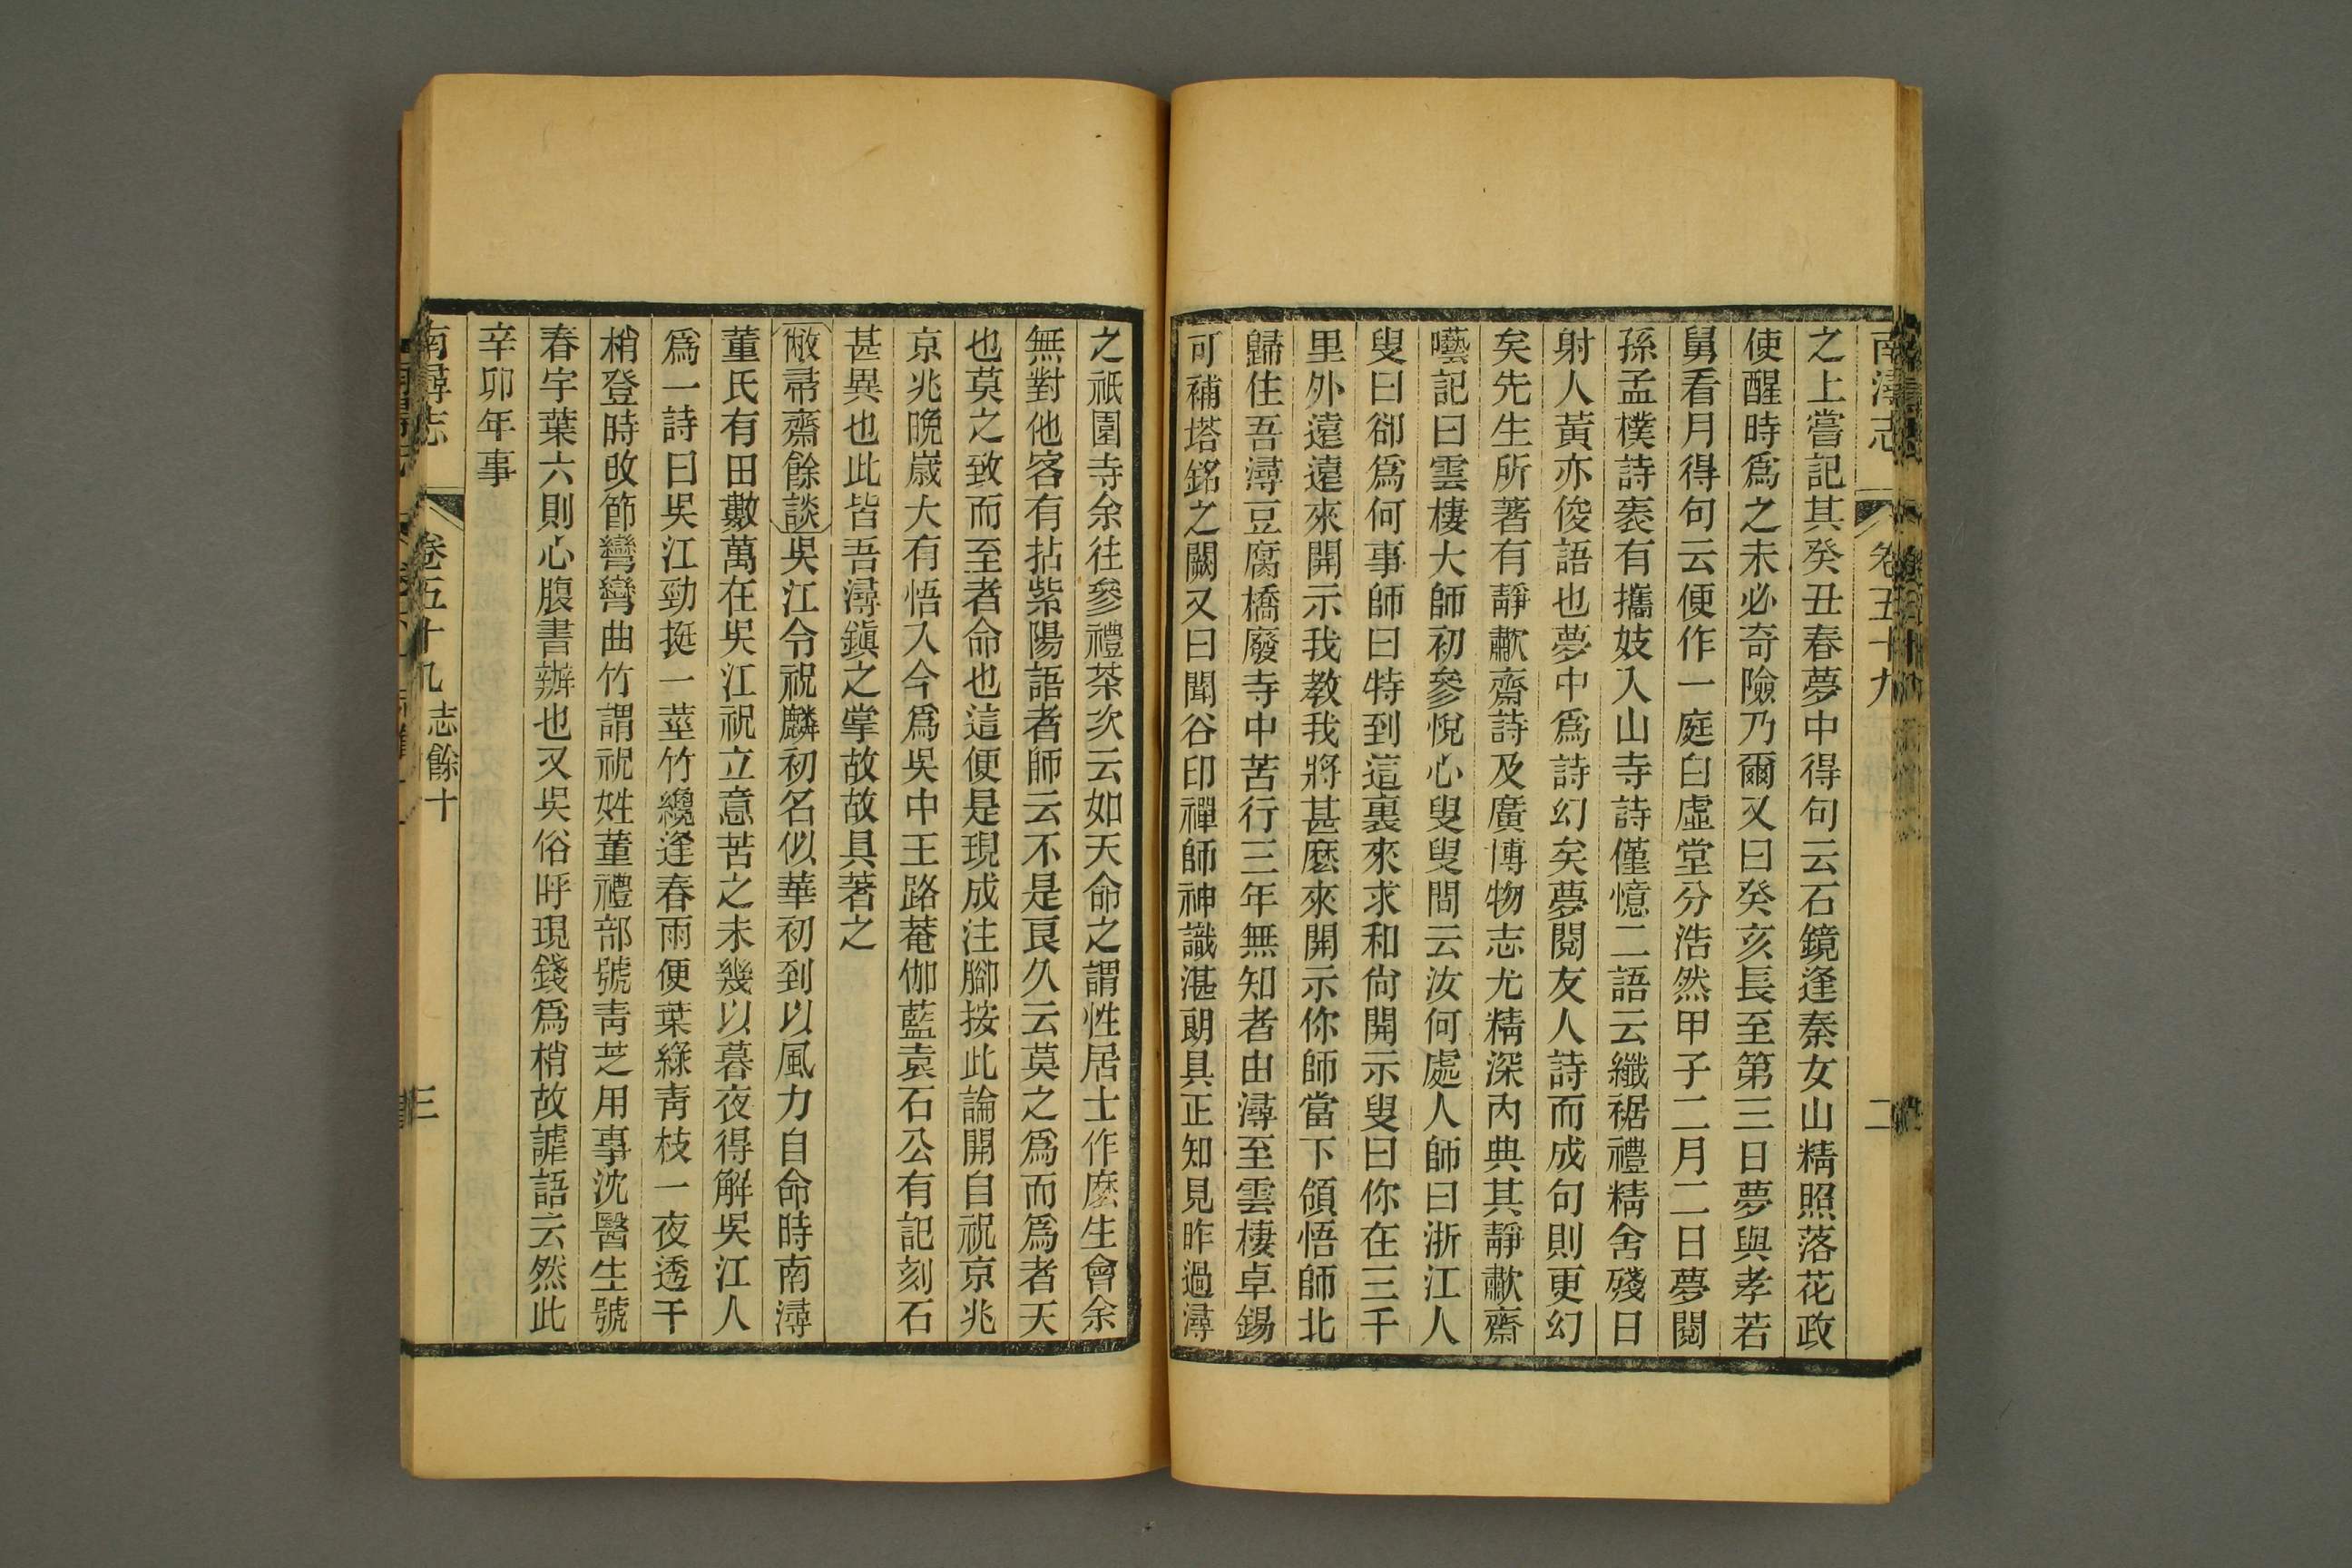 南潯志 卷五十九 二
之上嘗記其癸丑春夢中得句云石鏡逢秦女山精照落花政
使醒時爲之未必奇險乃爾又曰癸亥長至第三日夢與孝若
舅看月得句云便作一庭白虛堂分浩然甲子二月二日夢閱
孫孟樸詩袠有攜妓入山寺詩僅憶二語云纖裾禮精舍殘日
射人黃亦俊語也夢中爲詩幻矣夢閱友人詩而成句則更幻
矣先生所著有靜歗齋詩及廣博物志尤精深內典其靜歗齋
囈記曰雲棲大師初參悅心叟叟問云汝何處人師曰浙江人
叟曰卻爲何事師曰特到這裏來求和尙開示叟曰你在三千
里外遠遠來開示我教我將甚麼來開示你師當下領悟師北
歸住吾潯豆腐橋廢寺中苦行三年無知者由潯至雲棲卓錫
可補塔銘之闕又曰聞谷印禪師神識湛朗具正知見昨過潯
之祇園寺余往參禮茶次云如天命之謂性居士作麼生會余
無對他客有拈紫陽語者師云不是良久云莫之爲而爲者天
也莫之致而至者命也這便是現成注腳按此論開自祝京兆
京兆晚歲大有悟入今爲吳中王路菴伽藍袁石公有記刻石
甚異也此皆吾潯鎭之掌故故具著之
敝帚齋餘談吳江令祝麟初名似華初到以風力自命時南潯
董氏有田數萬在吳江祝立意苦之未幾以暮夜得解吳江人
爲一詩曰吳江勁挺一莖竹纔逢春雨便葉綠靑枝一夜透千
梢登時改節彎彎曲竹謂祝姓董禮部號靑芝用事沈醫生號
春宇葉六則心腹書辦也又吳俗呼現錢爲梢故謔語云然此
辛卯年事
南潯志 卷五十九 志餘十 三